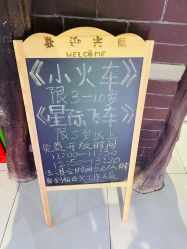 歡迎光臨
WELCOME
《小火车》
限3-10岁
《星际飞车》
限5岁以上
免费开放时间
11:00-11:30
12:50-13:20